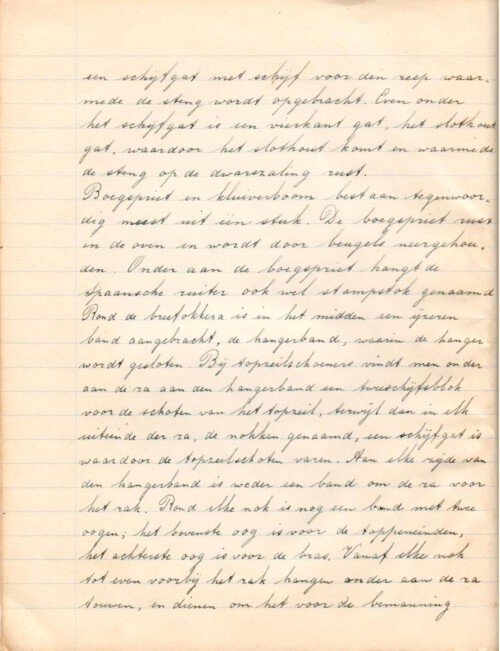 een schijfgat met schijf voor den reep waar-
mede de steng wordt opgebracht. Even onder
het schijfgat is een vierkant gat, het slothout
gat, waardoor het slothout komt en waarmede
de steng op de dwarszaling rust.
Boegspriet en kluiverboom bestaan tegenwoor-
dig meest uit één stuk. De boegspriet rust
in de oven en wordt door beugels neergehou-
den. Onder aan de boegspriet hangt de
spaansche ruiter ook wel stampstok genaamd
Rond de breefokkera is in het midden een ijzeren
band aangebracht, de hangerband, waarin de hanger
wordt gesloten. Bij topzeilschoeners vindt men onder
aan de ra aan den hangerband een tweeschijfsblok
voor de schoten van het topzeil, terwijl dan in elk
uiteinde der ra, de nokken genaamd, een schijfgat is
waardoor de topzeilschoten varen. Aan elke zijde van
den hangerband is weder een band om de ra voor
het rak. Rond elke nok is nog een band met twee
oogen; het bovenste oog is voor de toppeneinden,
het achterste oog is voor de bras. Vanaf elke nok
tot even voorbij het rak hangen onder aan de ra
touwen, en dienen om het voor de bemanning